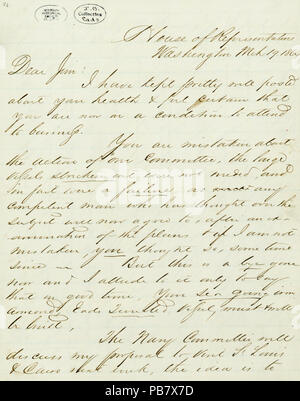 J. B.
Collection
House of Representatives
Washington Mch 19 186
Dear Jim:
I have kept pretty well posted
about your health & feel certain that
you are now in a condition to attend
to business.
You are mistaken about
the action of our Committee, the large
vessels are not needed and
in fact were a failure as any
competent man who has thought over the
subject will now agree to after an ex-
amination of the plans & if I am not
mistaken, you thought so, some time
since. But this is a
now and I allude to it only to say
that in good time, your Sea going iron
vessel, must
be built,
The Navy Committee will
discuss my proposal to visit St Louis
& Cairo next week, the idea is to
alamy
PB7X7D